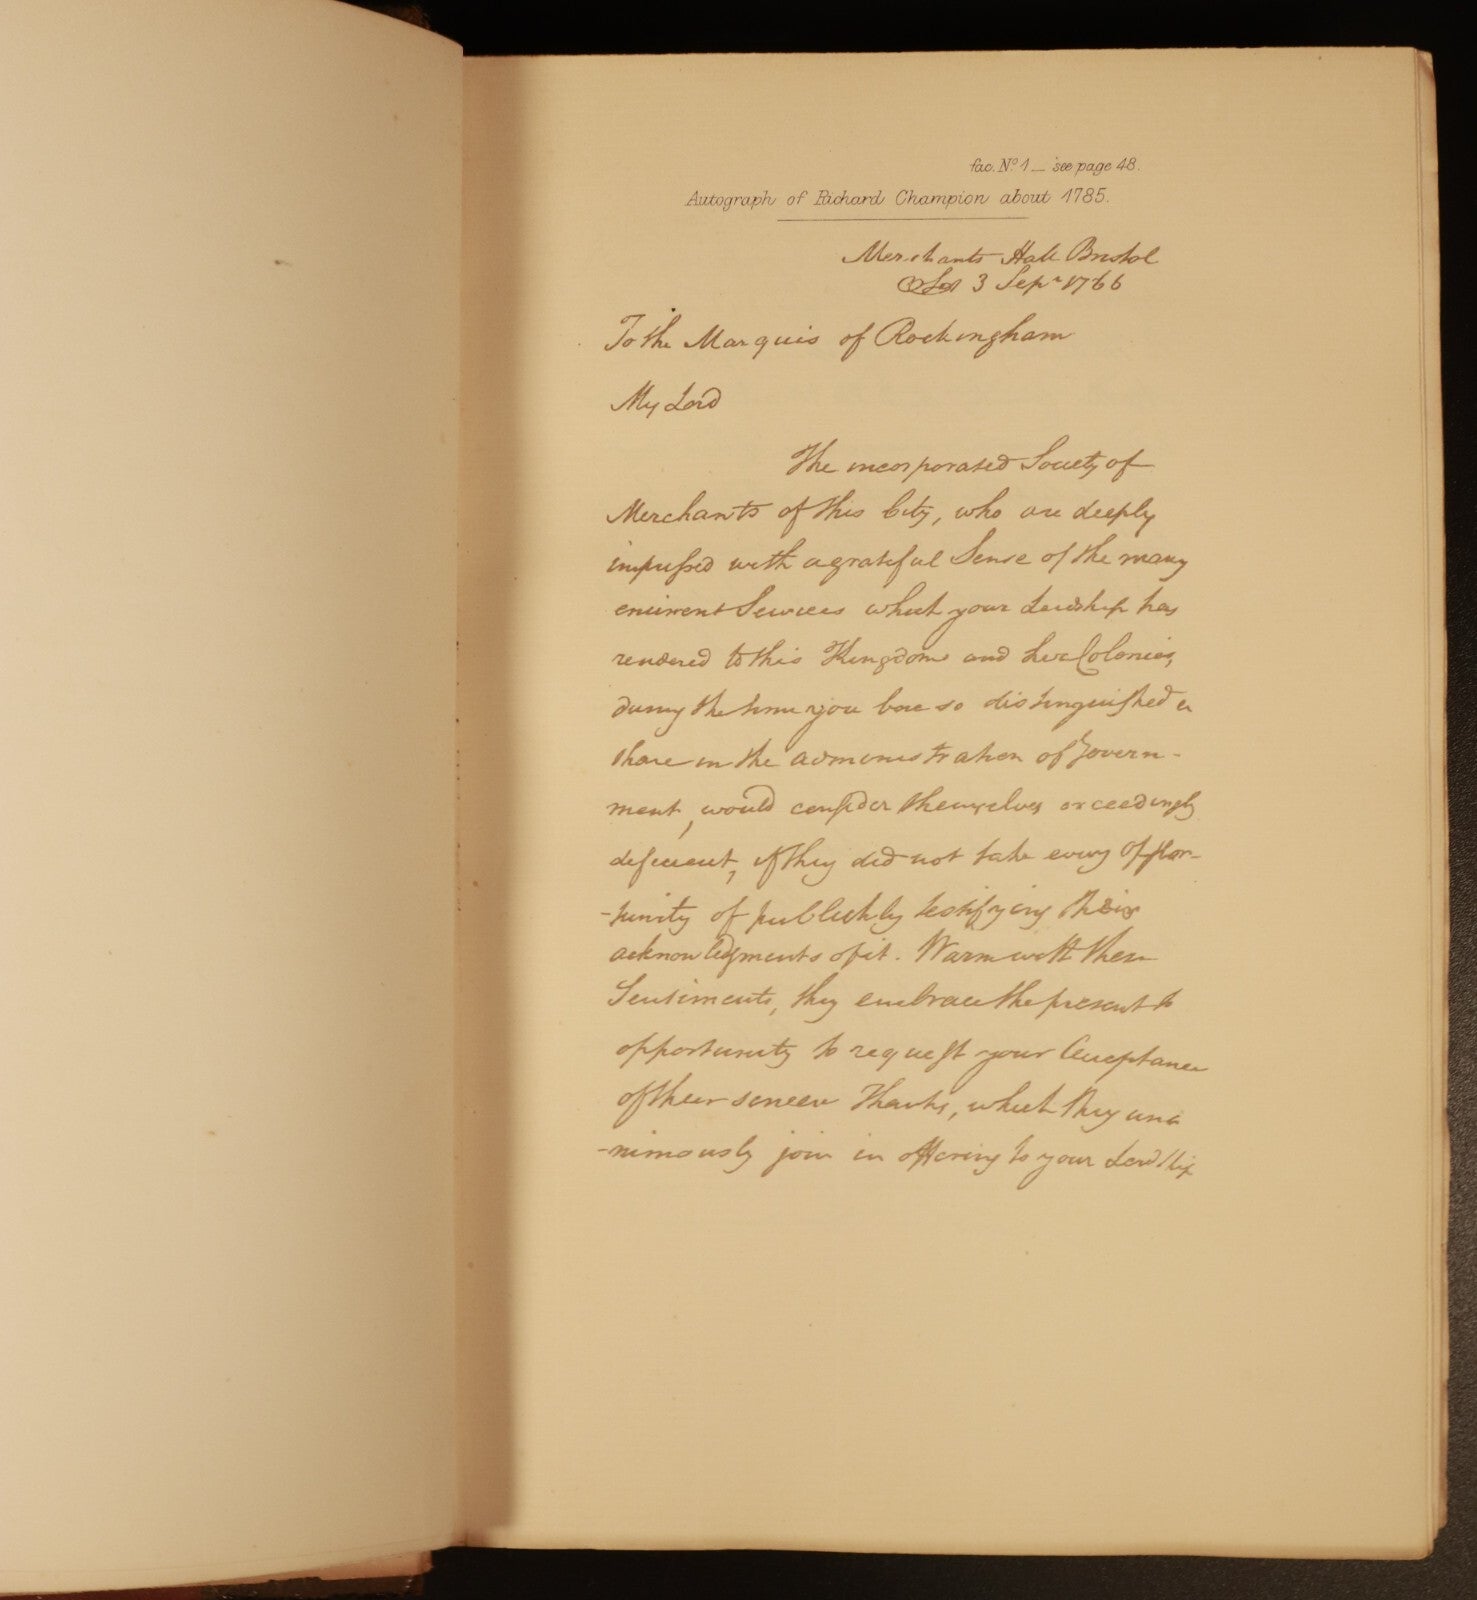 fac. Nº 1 _ see page 48.
Autograph of Richard Champion about 1785.
Merchants Hall Bristol
3 Sepr 1766
To the Marquis of Rockingham
My Lord
The incorporated Society of
Merchants of this City, who are deeply
impressed with a grateful Sense of the many
eminent Services which your Lordship has
rendered to this Kingdom and her Colonies,
during the time you bore so distinguished a
share in the administration of Govern-
ment, would consider themselves exceedingly
deficient, if they did not take every oppor-
-tunity of publickly testifying their
acknowledgments of it. Warm with these
Sentiments, they embrace the present
opportunity to request your Acceptance
of their sincere Thanks, which they una
-nimously join in offering to your Lordship